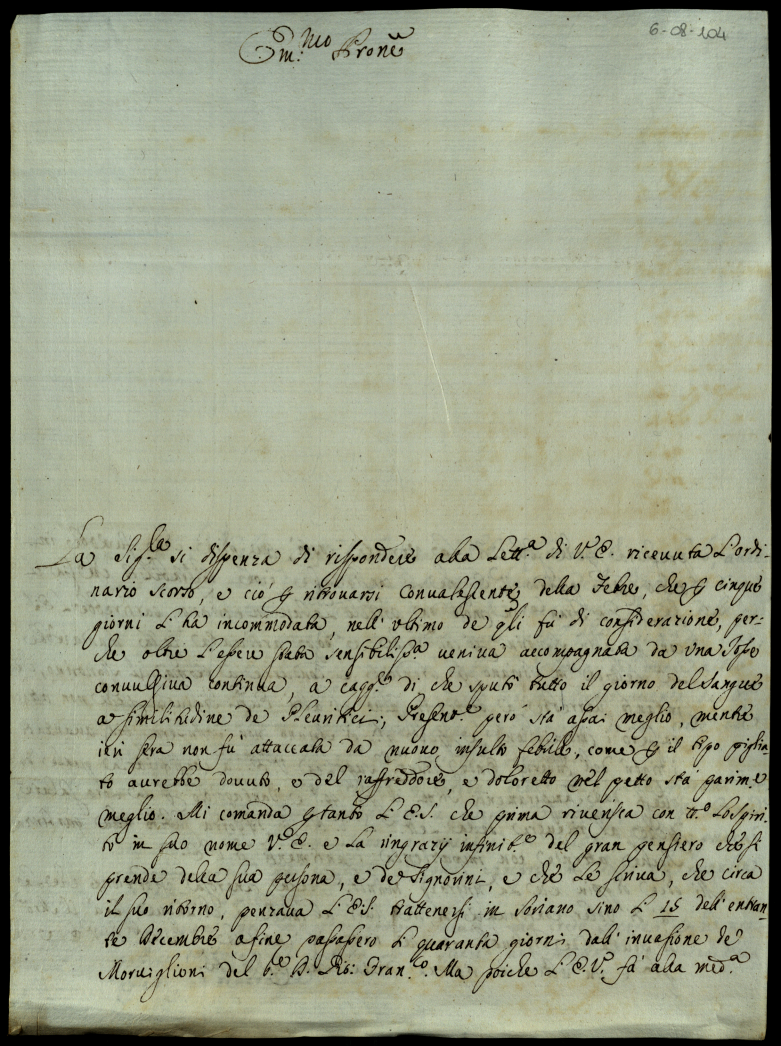 6-08-104
Em.mo Prone
La Sig.la si dispenza di rispondere alla Lett.a di V.E. riceuuta l'ordi-
nario scorso, e ciò p ritrouarsi conualascente della Febre, che p cinque
giorni l'ha incommodata, nell'ultimo de qli fù di considerazione, per-
che oltre l'essere stata sensibiliss.a ueniua accompagnata da una Tosse
conuulsiua continua, a cagg.e di che sputò tutto il giorno del Sangue
a similitudine de Pleuritici; Present.e però stà assai meglio, mentre
ieri sera non fù attaccata da nuouo insulto febile, come p il tipo piglia-
to aurebbe douuto, e del raffreddore, e doloretto nel petto stà parim.e
meglio. Mi comanda ptanto L'E.S. che prima riuerisca con tt.o lo Spiri-
to in suo nome V.E. e La ringrazij infinit.e del gran pensiero che si
prende della sua persona, e de Signorini, e che Le scriua, che circa
il suo ritorno, penzaua L'E.S. trattenersi in Soriano sino li 15 dell'entran-
te Decembre a fine passassero li quaranta giorni dall'inuasione de
Moruiglioni del Ma poiche L'E.V. fà alla med.a